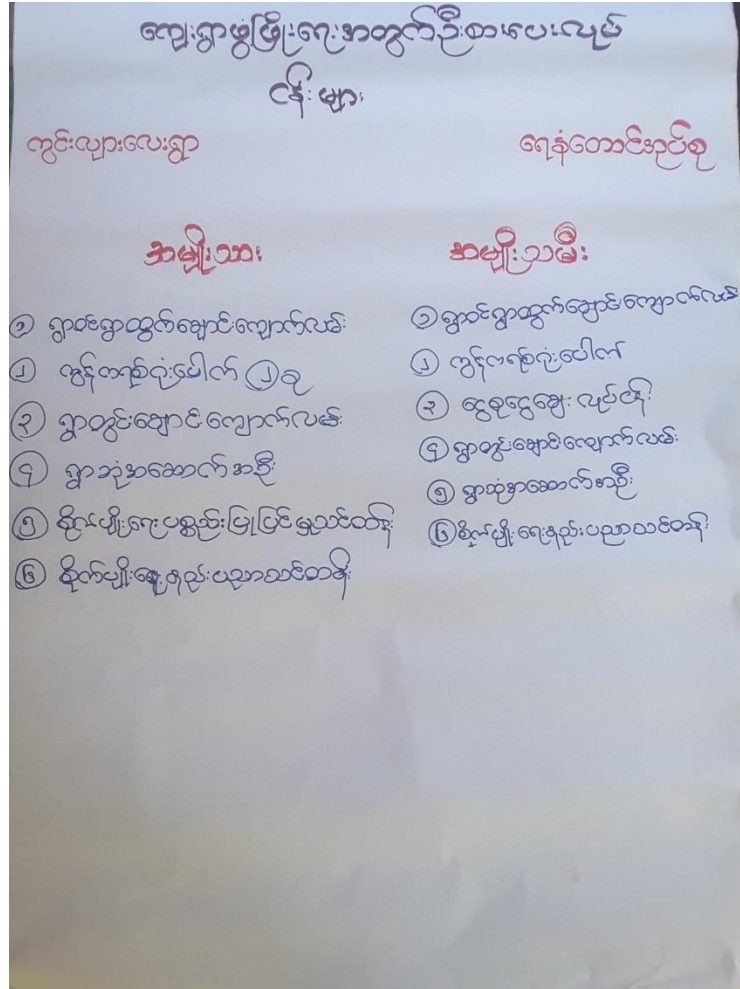 ကျေးရွာဖွံ့ဖြိုးရေးအတွက်ဦးစားပေးလုပ်
ငန်းများ
ကွင်းလျားလေးရွာ
ရေနံတောင်အုပ်စု
အမျိုးသား
၁ ရွာဝင်ရွာထွက်ချောင်းကျောက်လမ်း
၂ ကွန်ကရစ်ဂုံးပေါက် ၂ ခု
၃ ရွာတွင်းချောင်းကျောက်လမ်း
၄ ရွာဘုံအဆောက်အဦး
၅ စိုက်ပျိုးရေးပစ္စည်းပြုပြင်မှုသင်တန်း
၆ စိုက်ပျိုးရေးနည်းပညာသင်တန်း
အမျိုးသမီး
၁ ရွာဝင်ရွာထွက်ချောင်းကျောက်လမ်း
၂ ကွန်ကရစ်ဂုံးပေါက်
၃ ငွေစုငွေချေးလုပ်ငန်း
၄ ရွာတွင်းချောင်းကျောက်လမ်း
၅ ရွာဘုံအဆောက်အဦး
၆ စိုက်ပျိုးရေးနည်းပညာသင်တန်း